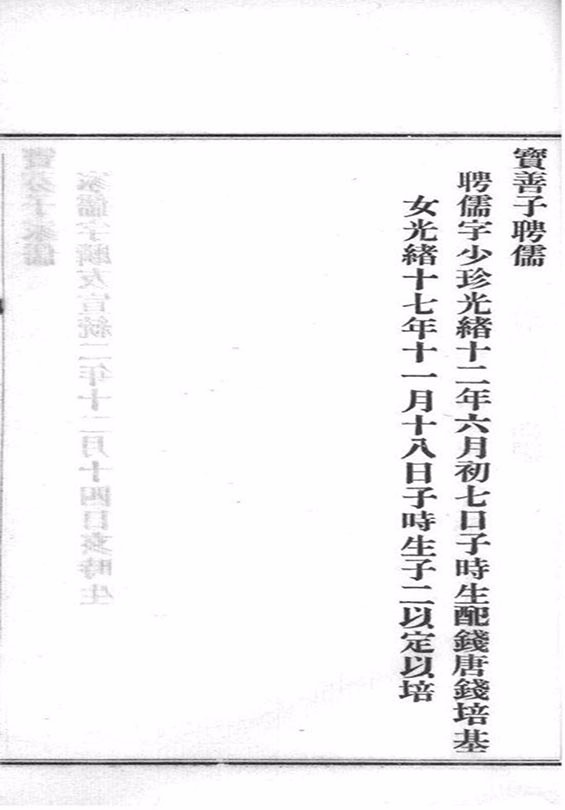 寶善子聘儒
聘儒字少珍光緒十二年六月初七日子時生配錢唐錢培基
女光緒十七年十一月十八日子時生子二以定以培